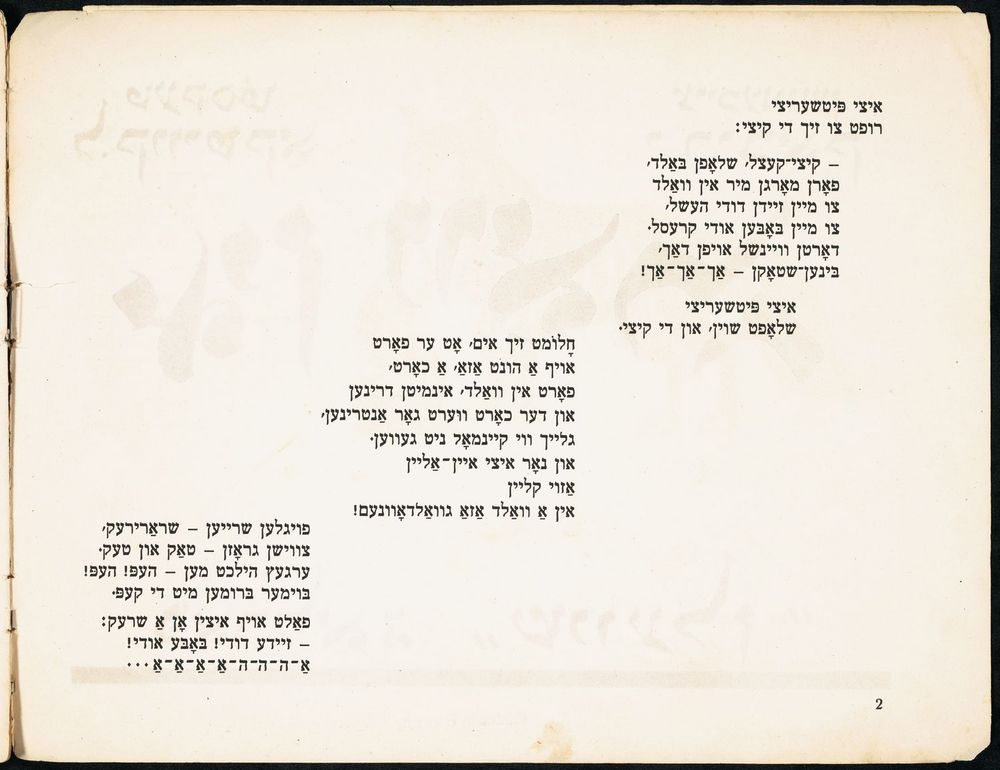 איצי פּיטשעריצי
רופט צו זיך די קיצי:
– קיצי־קעצל, שלאָפן באַלד,
פאָרן מאָרגן מיר אין וואַלד
צו מיין זיידן דודי העשל,
צו מיין באָבען אודי קרעסל.
דאָרטן וויינשל אויפן דאַך,
בינען־שטאָקן – אַך־אַך־אַך!
איצי פּיטשעריצי
שלאָפט שוין, און די קיצי.
חָלומט זיך אים, אָט ער פאָרט
אויף אַ הונט אַזאַ, אַ כאָרט,
פאָרט אין וואַלד, אינמיטן דרינען
און דער כאָרט ווערט גאָר אַנטרינען,
גלייך ווי קיינמאָל ניט געווען.
און נאָר איצי איין־אַליין
אַזוי קליין
אין אַ וואַלד אַזאַ גוואַלדאָוונעם!
פויגלען שרייען – שראַרירעק,
צווישן גראָזן – טאַק און טעק.
ערגעץ הילכט מען – העפּ! העפּ!
בוימער ברומען מיט די קעפּ.
פאַלט אויף איצין אָן אַ שרעק:
– זיידע דודי! באָבע אודי!
אַ־ה־ה־ה־אַ־אַ־אַ־אַ...
2